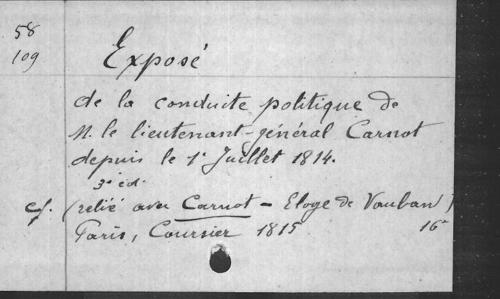 58
109
Exposé
de la conduite politique de
M. le lieutenant-général Carnot
depuis le 1r Juillet 1814.
3e éd.
cf. (relié avec Carnot - Eloge de Vauban)
Paris, Courcier 1815 16°